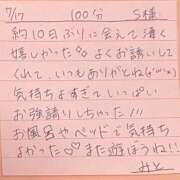 7/17 100分 S様
約10日ぶりに会えて凄く
嬉しかった。よくお誘いして
くれて、いつもありがとね(*'ω'*)
気持ちよすぎていっぱい
お強請りしちゃった!!!
お風呂やベッドで気持ち
よかった♡♡また遊ぼうね!!
みと